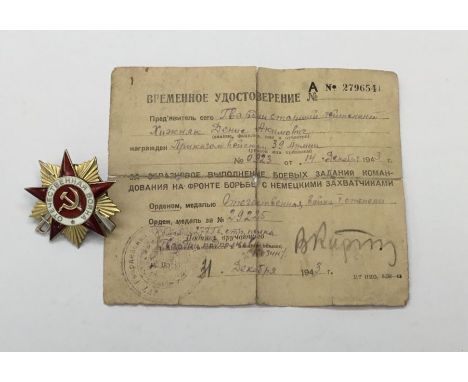 А № 279654
ВРЕМЕННОЕ УДОСТОВЕРЕНИЕ №
Пред'явитель сего Гвардии старший лейтенант
Хижняк Денис Акимович
(звание, фамилия, имя и отчество)
награжден Приказом войскам 39 Армии
№ 0923 от 14 Декабря 1943 г.
ЗА ОБРАЗЦОВОЕ ВЫПОЛНЕНИЕ БОЕВЫХ ЗАДАНИЙ КОМАН-
ДОВАНИЯ НА ФРОНТЕ БОРЬБЫ С НЕМЕЦКИМИ ЗАХВАТЧИКАМИ
Орденом, медалью Отечественная война степени
Орден, медаль за № 29225
31 Декабря 1943 г.
ОТЕЧЕСТВЕННАЯ ВОЙНА